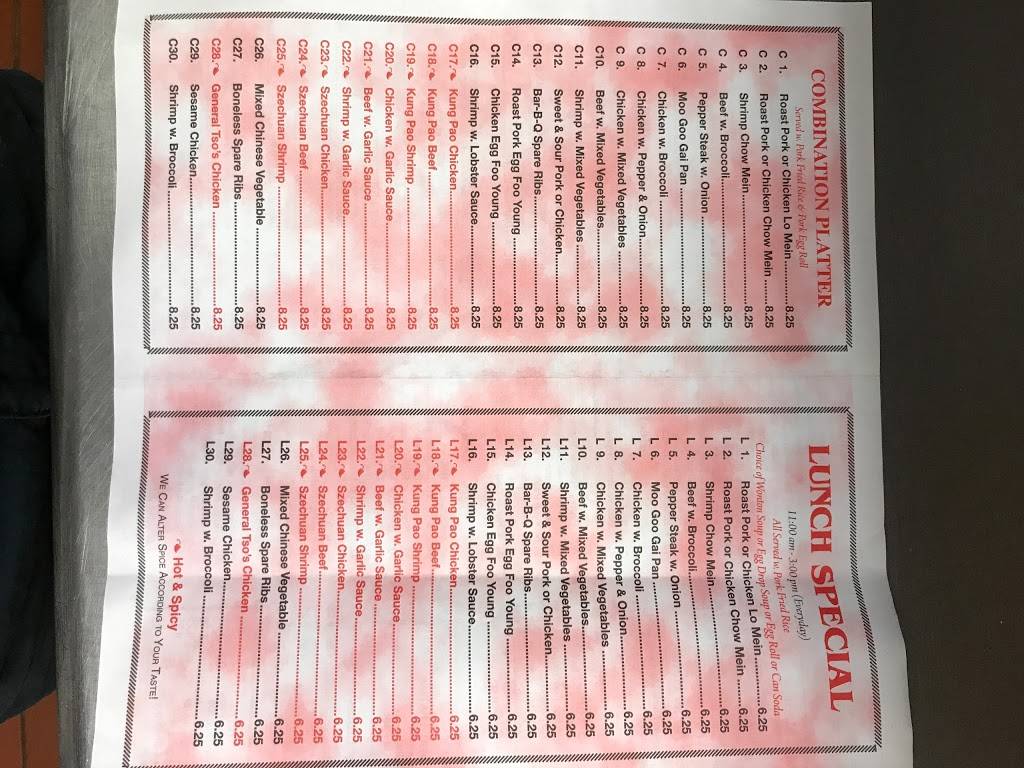 COMBINATION PLATTER
Served w. Pork Fried Rice & Pork Egg Roll
C 1. Roast Pork or Chicken Lo Mein 8.25
C 2. Roast Pork or Chicken Chow Mein 8.25
C 3. Shrimp Chow Mein 8.25
C 4. Beef w. Broccoli 8.25
C 5. Pepper Steak w. Onion 8.25
C 6. Moo Goo Gai Pan 8.25
C 7. Chicken w. Broccoli 8.25
C 8. Chicken w. Pepper & Onion 8.25
C 9. Chicken w. Mixed Vegetables 8.25
C10. Beef w. Mixed Vegetables 8.25
C11. Shrimp w. Mixed Vegetables 8.25
C12. Sweet & Sour Pork or Chicken 8.25
C13. Bar-B-Q Spare Ribs 8.25
C14. Roast Pork Egg Foo Young 8.25
C15. Chicken Egg Foo Young 8.25
C16. Shrimp w. Lobster Sauce 8.25
C17. Kung Pao Chicken 8.25
C18. Kung Pao Beef 8.25
C19. Kung Pao Shrimp 8.25
C20. Chicken w. Garlic Sauce 8.25
C21. Beef w. Garlic Sauce 8.25
C22. Shrimp w. Garlic Sauce 8.25
C23. Szechuan Chicken 8.25
C24. Szechuan Beef 8.25
C25. Szechuan Shrimp 8.25
C26. Mixed Chinese Vegetable 8.25
C27. Boneless Spare Ribs 8.25
C28. General Tso's Chicken 8.25
C29. Sesame Chicken 8.25
C30. Shrimp w. Broccoli 8.25
LUNCH SPECIAL
11:00 am - 3:00 pm (Everyday)
All Served w. Pork Fried Rice
Choice of Wonton Soup or Egg Drop Soup or Egg Roll or Can Soda
L 1. Roast Pork or Chicken Lo Mein 6.25
L 2. Roast Pork or Chicken Chow Mein 6.25
L 3. Shrimp Chow Mein 6.25
L 4. Beef w. Broccoli 6.25
L 5. Pepper Steak w. Onion 6.25
L 6. Moo Goo Gai Pan 6.25
L 7. Chicken w. Broccoli 6.25
L 8. Chicken w. Pepper & Onion 6.25
L 9. Chicken w. Mixed Vegetables 6.25
L10. Beef w. Mixed Vegetables 6.25
L11. Shrimp w. Mixed Vegetables 6.25
L12. Sweet & Sour Pork or Chicken 6.25
L13. Bar-B-Q Spare Ribs 6.25
L14. Roast Pork Egg Foo Young 6.25
L15. Chicken Egg Foo Young 6.25
L16. Shrimp w. Lobster Sauce 6.25
L17. Kung Pao Chicken 6.25
L18. Kung Pao Beef 6.25
L19. Kung Pao Shrimp 6.25
L20. Chicken w. Garlic Sauce 6.25
L21. Beef w. Garlic Sauce 6.25
L22. Shrimp w. Garlic Sauce 6.25
L23. Szechuan Chicken 6.25
L24. Szechuan Beef 6.25
L25. Szechuan Shrimp 6.25
L26. Mixed Chinese Vegetable 6.25
L27. Boneless Spare Ribs 6.25
L28. General Tso's Chicken 6.25
L29. Sesame Chicken 6.25
L30. Shrimp w. Broccoli 6.25
Hot & Spicy
WE CAN ALTER SPICE ACCORDING TO YOUR TASTE!